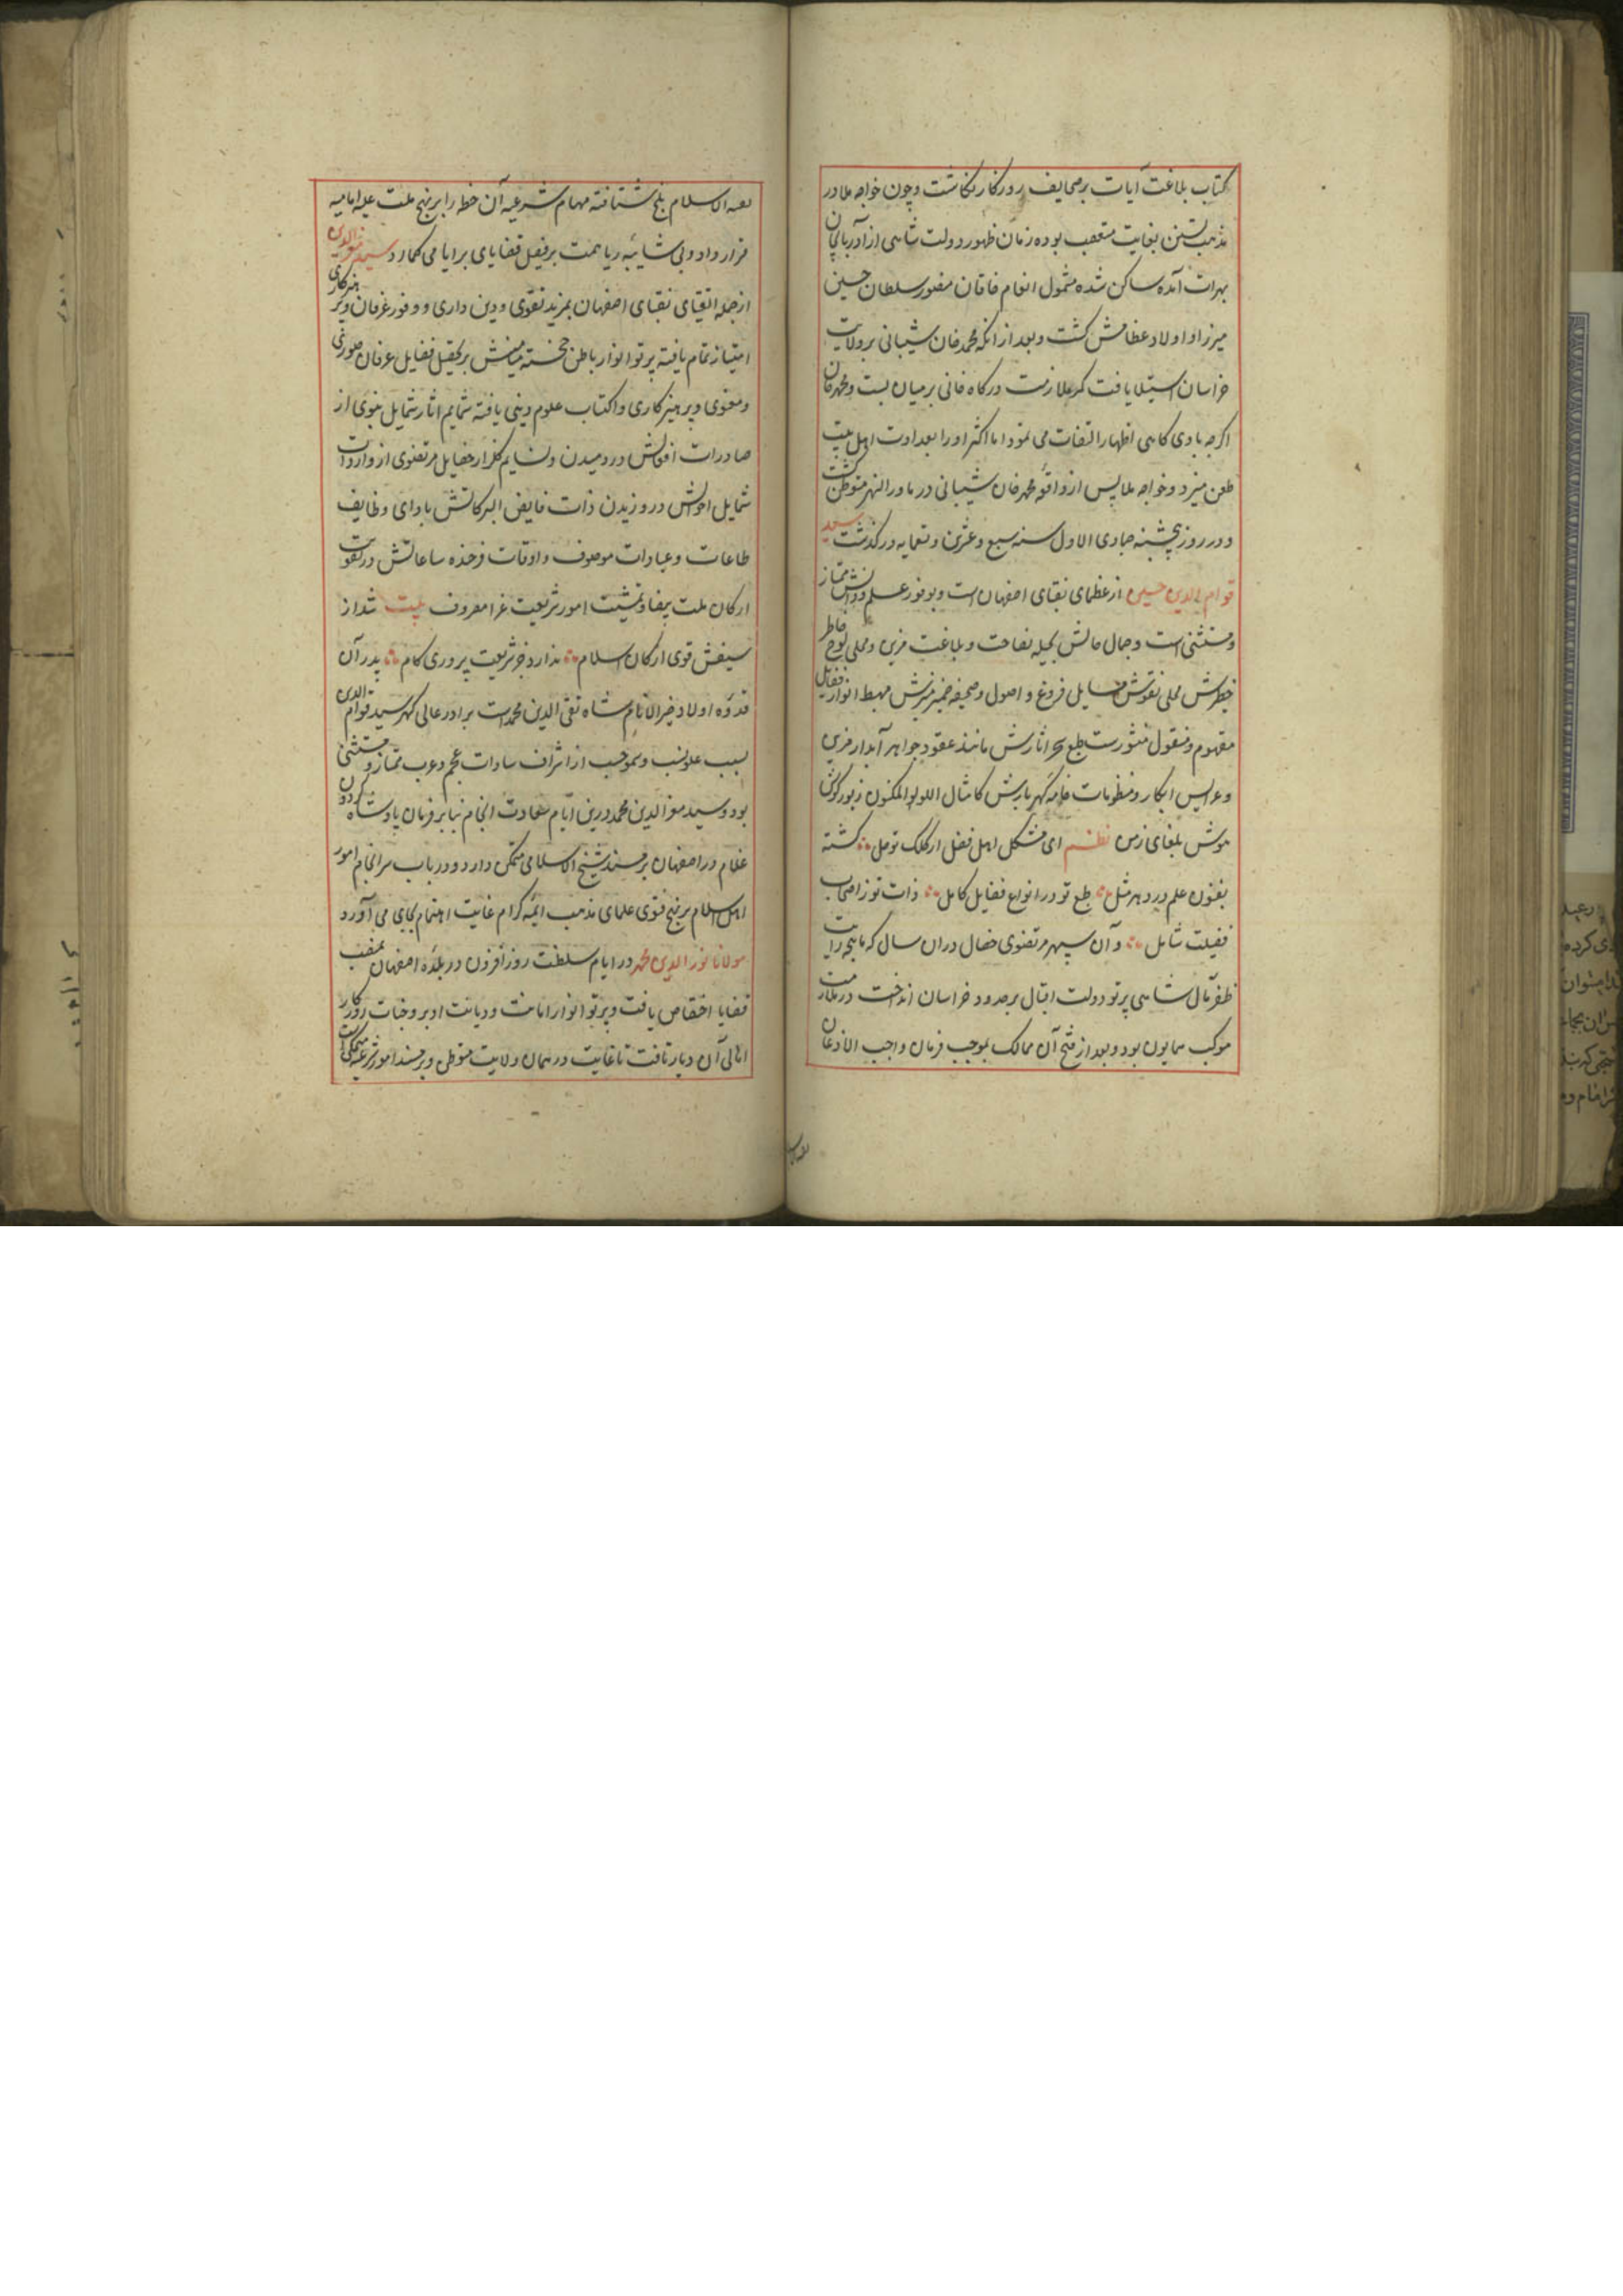 کتاب بلاغت آیات بر صحایف روزگار نگاشت و چون خواجه ملا در
مذهب تسنن بغایت متعصب بوده زمان ظهور دولت شاهی از آذربایجان
بهرات آمده ساکن شده مشمول انعام خاقان مغفور سلطان حسین
میرزا و اولاد عظامش گشت و بعد از انکه محمد خان شیبانی بر ولایت
خراسان استیلا یافت کمر ملازمت درگاه خانی بر میان بست و محمد خان
اگرچه با وی گاهی اظهار التفات می نمود اما اکثر او را بعداوت اهل بیت
طعن میزد و خواجه ملا پس از واقعه محمد خان شیبانی در ماورالنهر متوطن گشت
و در روز پنجشنبه جمادی الاول سنه سبع و عشرین و تسعمایه درگذشت سید
قوام الدین حسین از عظمای نقبای اصفهان است و بوفور علم و دانش ممتاز
و مستثنی است و جمال حالش بحلیه فصاحت و بلاغت مزین و محلی لوح خاطر
خطیرش محلی نقوش مسایل فروع و اصول و صحیفه ضمیر منیرش مهبط انوار فضایل
مفهوم و منقول منثورت طبع سحر اثارش مانند عقود جواهر آبدار مزین
و عرایس ابکار و منظومات خامه گهر بارش کامثال اللولو المکنون زیور گوش
هوش بلغای زمن نظم ای مشکل اهل فضل از کلک تو حل گشته
بفنون علم در دهر مثل طبع تو در انواع فضایل کامل ذات تو ز اصحاب
فضیلت شامل و آن سپهر مرتضوی خصال در ان سال که ماهچه رایت
ظفر مآل شاهی پرتو دولت اقبال بر حدود خراسان انداخت در ملازمت
موکب همایون بود و بعد از فتح آن ممالک بموجب فرمان واجب الاذعان
الاسلام بلخ شتافته مهام شرعیه آن خطه را بر نهج ملت علیه امامیه
قرار داد و بی شایبه ریا همت بر فیصل قضایای برایا می گمارد و سید معز الدین
از جمله اتقیای نقبای اصفهان بمزید تقوی و دین داری و وفور عرفان و پرهیزکاری
امتیاز تمام یافته پرتو انوار باطن خجسته میامنش بر تحصیل فضایل عرفان صوری
و معنوی و پرهیزکاری و اکتساب علوم دینی یافته شمایم اثار شمایل نبوی از
صادرات افعالش در دمیدن و نسایم گلزار خصایل مرتضوی از واردات
شمایل احوالش در وزیدن ذات فایض البرکاتش بادای وظایف
طاعات و عبادات موصوف و اوقات فرخنده ساعاتش در تقویت
ارکان ملت بیضا و تمشیت امور شریعت غرا معروف بیت شد از
سیفش قوی ارکان اسلام ندارد جز شریعت پروری کام پدر آن
قدوه اولاد خیر الانام شاه تقی الدین محمد است برادر عالی گهر سید قوام الدین
بسبب علو نسب و سمو حسب از اشراف سادات عجم و عرب ممتاز و مستثنی
بود و سید معز الدین محمد درین ایام سعادت انجام بنا بر فرمان پادشاه گردون
غلام در اصفهان بر مسند شیخ الاسلامی متمکن دارد و در باب سرانجام امور
اهل اسلام بر نهج فتوی علمای مذهب ایمه کرام غایت اهتمام بجای می آورد
مولانا نور الدین محمد در ایام سلطنت روز افزون در بلده اصفهان بمنصب
قضایا اختصاص یافت و پرتو انوار امانت و دیانت او بر وجنات روزگار
اهالی آن دیار تافت تا غایت در همان ولایت متوطن و بر مسند امور شرعیه متمکن است